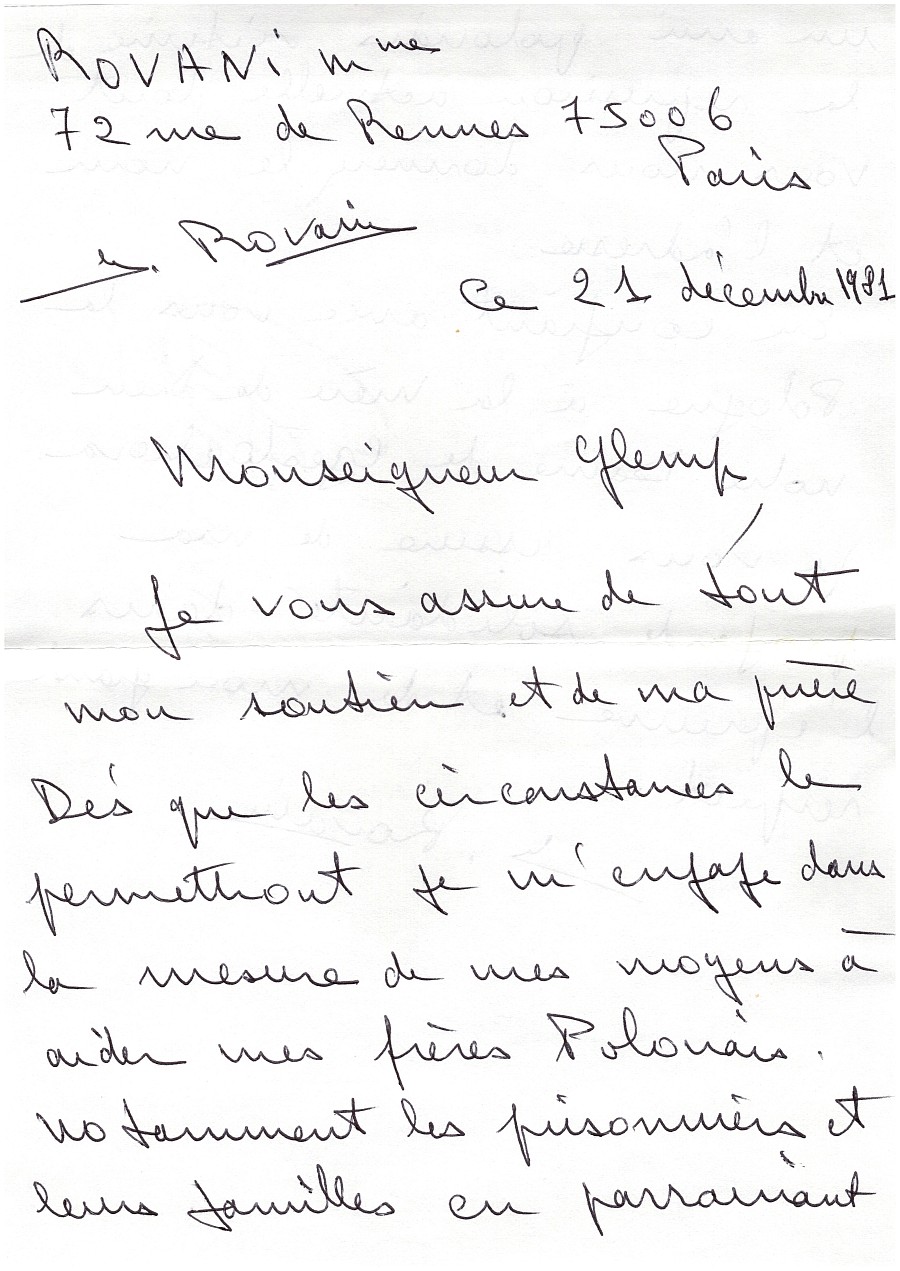 ROVANi Mme
72 rue de Rennes 75006
Paris
Rovani
Ce 21 décembre 1981
Monseigneur Glemp,
Je vous assure de tout
mon soutien et de ma prière
Dès que les circonstances le
permettront je m'engage dans
la mesure de mes moyens à
aider mes frères Polonais.
notamment les prisonniers et
leurs familles en parrainant